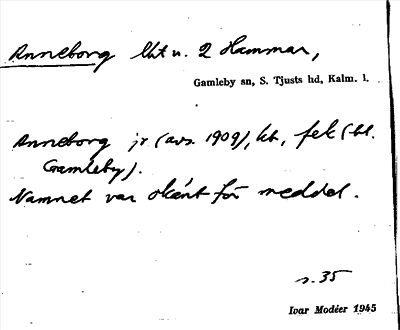 Anneborg lht u. 2 Hammar,
Gamleby sn, S. Tjusts hd, Kalm. l.
Anneborg jr (avs. 1909), kt, fek (bl.
Gamleby).
Namnet var okänt för meddel.
s. 35
Ivar Modéer 1945